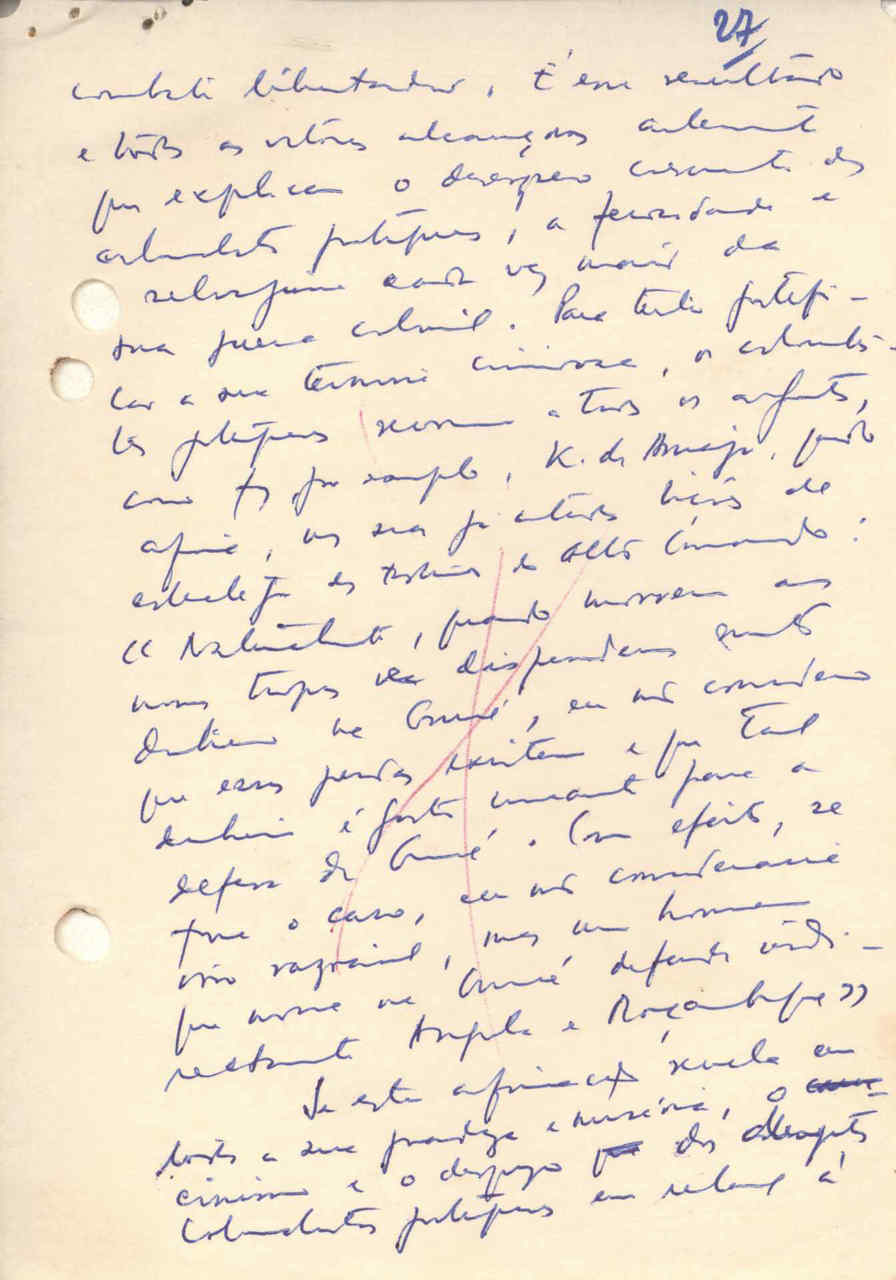 27
combate libertador. É esse resultado
e todas as vitórias alcançadas
que explicam o desespero crescente dos
colonialistas portugueses, a ferocidade e
selvajaria cada vez maior da
sua guerra colonial. Para tentar justifi-
car a sua criminosa, os colonialis-
tas portugueses recorrem a todos os argumentos,
como faz, por exemplo, K. de Arriaga, quando
afirma, nas suas lições de
estratégia do Alto Comando:
« Naturalmente, quando morrem as
nossas tropas dispendemos muito
dinheiro na Guiné, eu não considero
que essas perdas existem e que tal
dinheiro é gasto unicamente para a
defesa da Guiné. Com efeito, se
fosse o caso, eu não consideraria
isso razoável, mas um homem
que morre na Guiné defende indi-
rectamente Angola e Moçambique »
Se esta afirmação revela em
toda a sua grandeza e miséria, o
cinismo e o desprezo dos
colonialistas portugueses em relação à